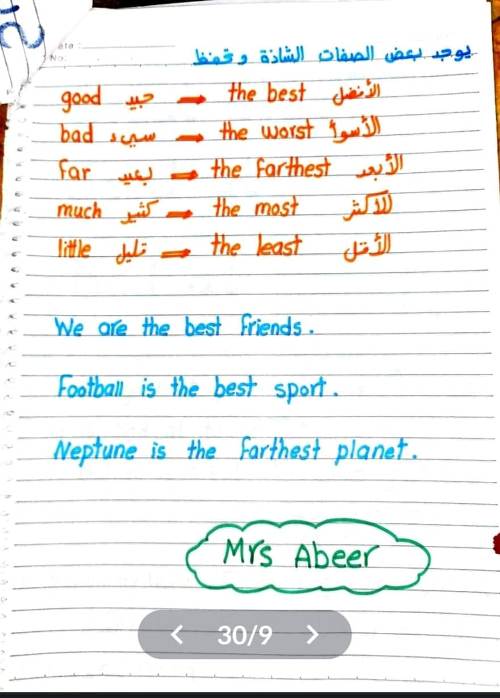 ate :
No.
يوجد بعض الصفات الشاذة وتحفظ
good جيد → the best الأفضل
bad سيء → the worst الأسوأ
far بعيد → the farthest الأبعد
much كثير → the most الأكثر
little قليل → the least الأقل
We are the best friends.
Football is the best sport.
Neptune is the farthest planet.
Mrs Abeer
< 30/9 >